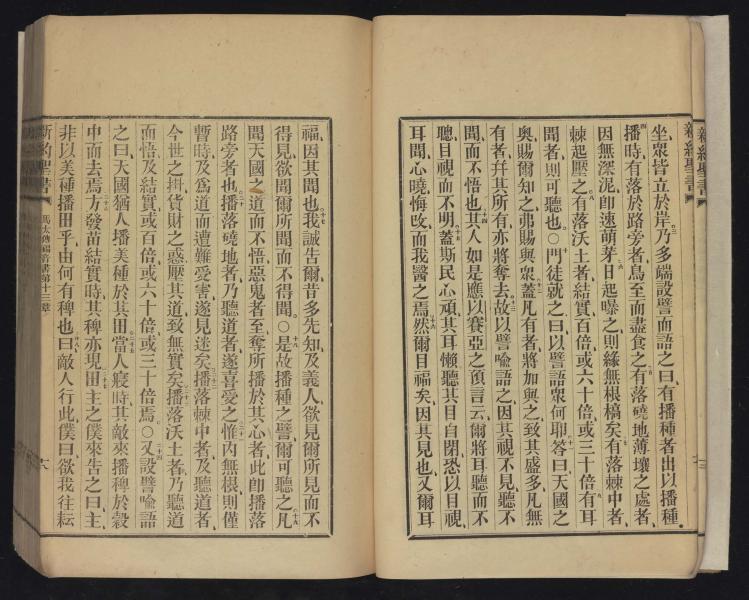 新約聖書
坐衆皆立於岸乃多端設譬而語之曰有播種者出以播種
播時有落於路旁者鳥至而盡食之有落磽地薄壤之處者
因無深泥卽速萌芽日起曝之則緣無根槁矣有落棘中者
棘起壓之有落沃土者結實或百倍或六十倍或三十倍有耳
聞者則可聽也○門徒就之曰以譬語衆何耶答曰天國之
奧賜爾知之弗賜與衆蓋凡有者將加與之致其盛多凡無
有者幷其所有亦將奪去故以譬喻語之因其視不見聽不
聞而不悟也其人如是應以賽亞之預言云爾將耳聽而不
聰目視而不明蓋斯民心頑其耳懶聽其目自閉恐以目視
耳聞心曉悔改而我醫之焉然爾目福矣因其見也又爾耳
福因其聞也我誠告爾昔多先知及義人欲見爾所見而不
得見欲聞爾所聞而不得聞○是故播種之譬爾可聽之凡
聞天國之道而不悟惡鬼者至奪所播於其心者此卽播落
路旁者也播落磽地者乃聽道者遂喜愛之惟內無根則僅
暫時及爲道而遭難受害遂見迷矣播落棘中者及聽道者
今世之掛貨財之惑厭其道致無實矣播落沃土者乃聽道
而悟及結實或百倍或六十倍或三十倍焉○又設譬喻語
之曰天國猶人播美種於其田當人寢時其敵來播稗於穀
中而去焉方發苗結實時其稗亦現田主之僕來告之曰主
非以美種播田乎由何有稗也曰敵人行此僕曰欲我往耘
新約聖書 馬太傳福音書第十三章 十八